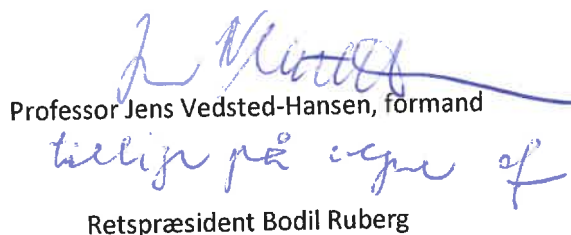 Professor Jens Vedsted-Hansen, formand
tillige på vegne af
Retspræsident Bodil Ruberg